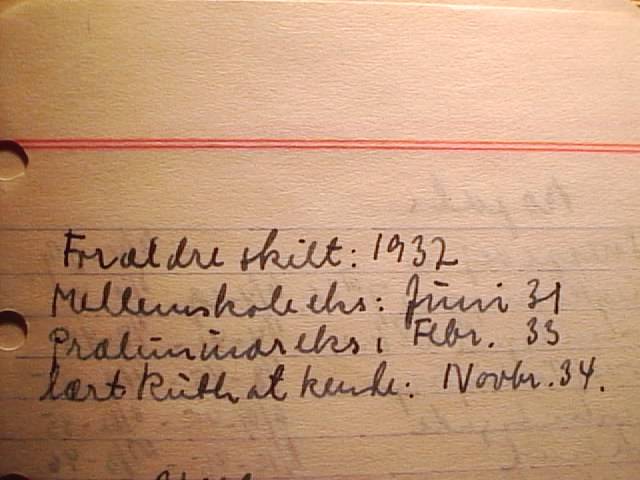 Forældre skilt: 1932
Mellemskoleeks: Juni 31
Præliminæreks: Febr. 33
lært Ruth at kende: Novbr. 34.